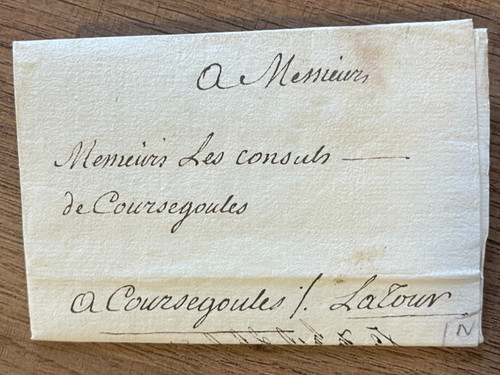 A Messieurs
Messieurs Les consuls
de Coursegoules
A Coursegoules /. LaTour